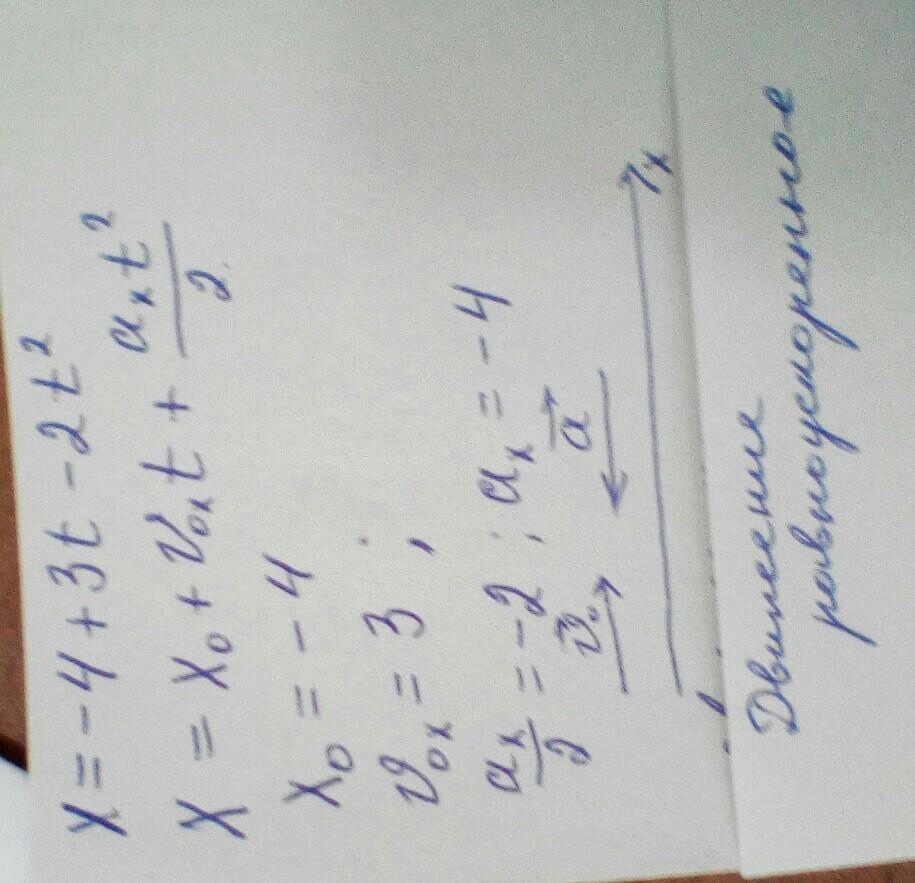 x = -4 + 3t - 2t²
x = x₀ + v₀ₓt + aₓt²/2
x₀ = -4
v₀ₓ = 3 ;
aₓ/2 = -2 ; aₓ = -4
v⃗₀ a⃗
x
Движение
равноускоренное